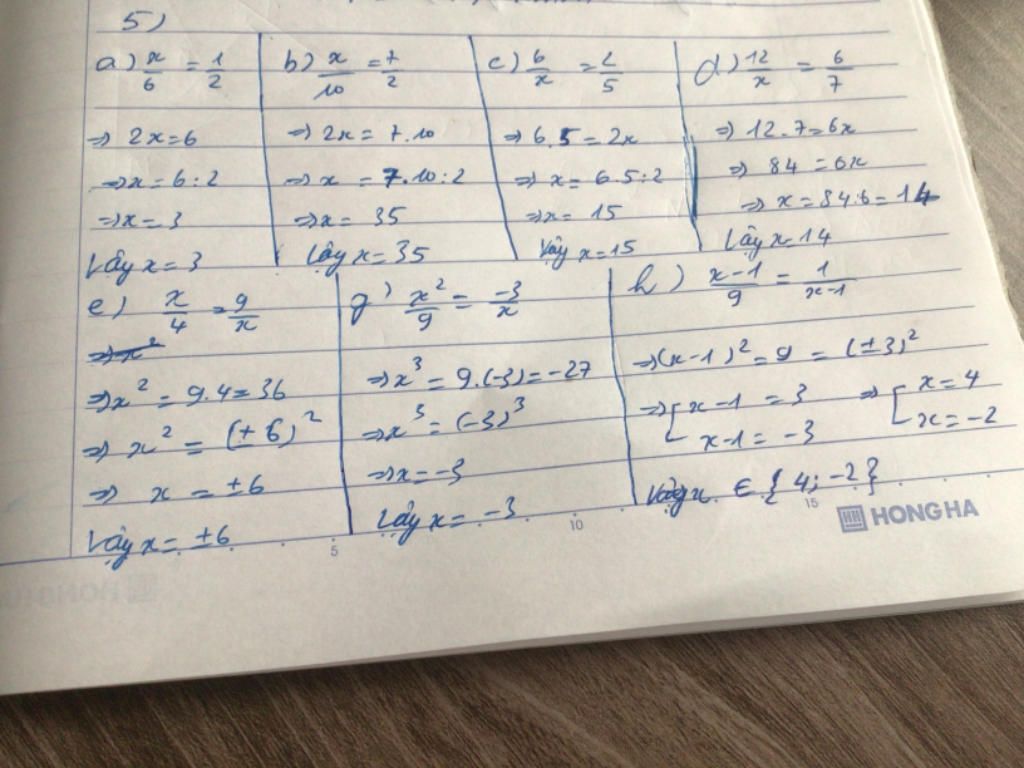 5)
a) x/6 = 1/2
⇒ 2x = 6
⇒ x = 6 : 2
⇒ x = 3
Vậy x = 3
b) x/10 = 7/2
⇒ 2x = 7.10
⇒ x = 7.10 : 2
⇒ x = 35
Vậy x = 35
c) 6/x = 2/5
⇒ 6.5 = 2x
⇒ x = 6.5 : 2
⇒ x = 15
Vậy x = 15
d) 12/x = 6/7
⇒ 12.7 = 6x
⇒ 84 = 6x
⇒ x = 84:6 = 14
Vậy x = 14
e) x/4 = 9/x
⇒ x²
⇒ x² = 9.4 = 36
⇒ x² = (±6)²
⇒ x = ±6
Vậy x = ±6
g) x²/9 = -3/x
⇒ x³ = 9.(-3) = -27
⇒ x³ = (-3)³
⇒ x = -3
Vậy x = -3
h) x-1/9 = 1/x-1
⇒ (x-1)² = 9 = (±3)²
⇒ [ x-1 = 3 ⇒ [ x = 4
x-1 = -3 x = -2
Vậy x ∈ {4; -2}
5 10 15
HH HONG HA